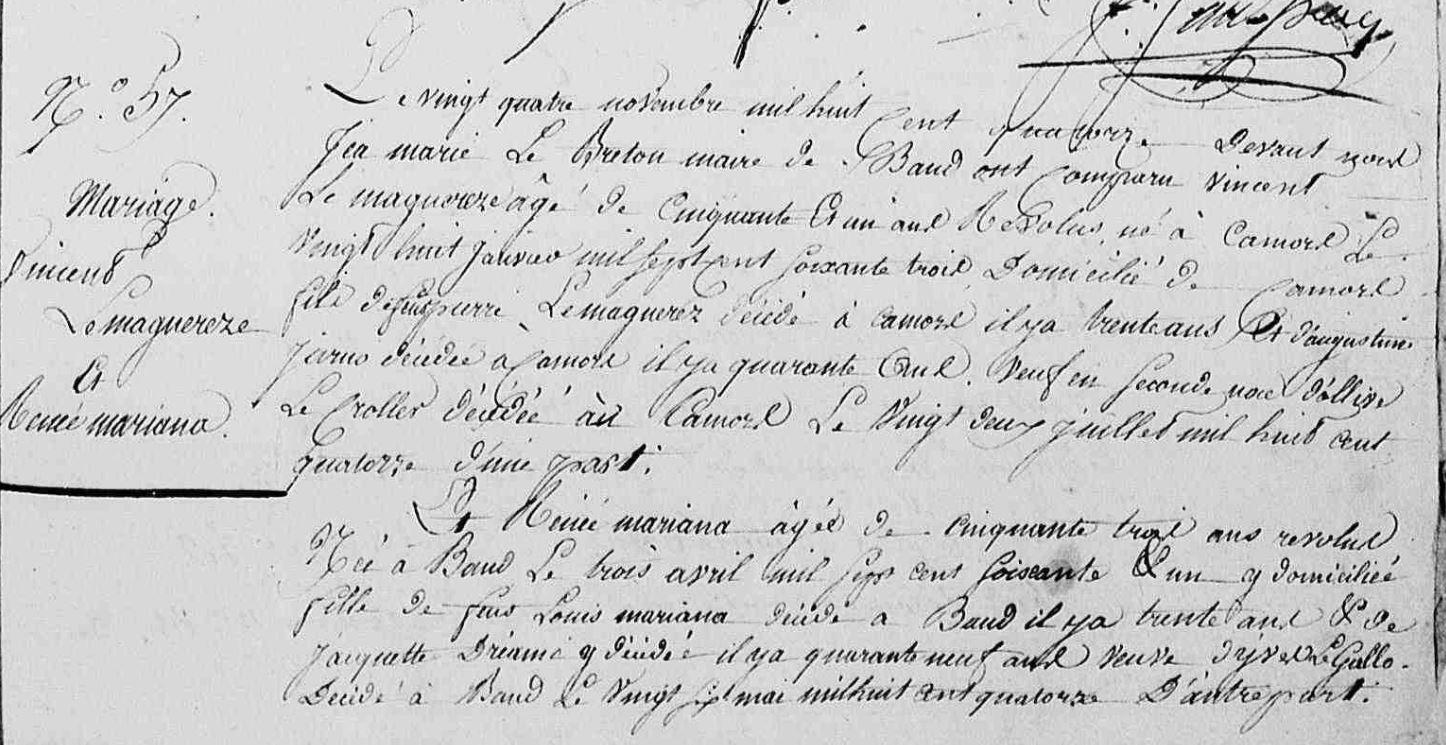 N.° 57.
Mariage.
Vincent
Lemaguereze
Et
Renée mariana.
Le vingt quatre novembre mil huit cent quatorze devant nous
Jea marie Le Breton maire de Baud ont comparu vincent
Le maguereze âgé de cinquante Et un ans Revolus, né à Camors Le
vingt huit janvier mil sept cent soixante trois Domicilié de Camors
fils de feus pierre Lemaguerez décédé à camors il ya trente ans Et d'augustine
jarno décédée à Camors il ya quarante Ans. Veuf en seconde noce d'ollive
Le Croller décédée à Camors Le Vingt deux juillet mil huit cent
quatorze d'une part.
Et Renée mariana âgée de cinquante trois ans revolus
Née à Baud Le trois avril mil sept cent soixante & un y domiciliée
fille de feus Louis mariana décédé a Baud il ya trente ans & de
jacquette Dréano y décédée il ya quarante neuf ans veuve d'yves Le Gallo.
Décédé à Baud Le Vingt six mai mil huit cent quatorze D'autre part.